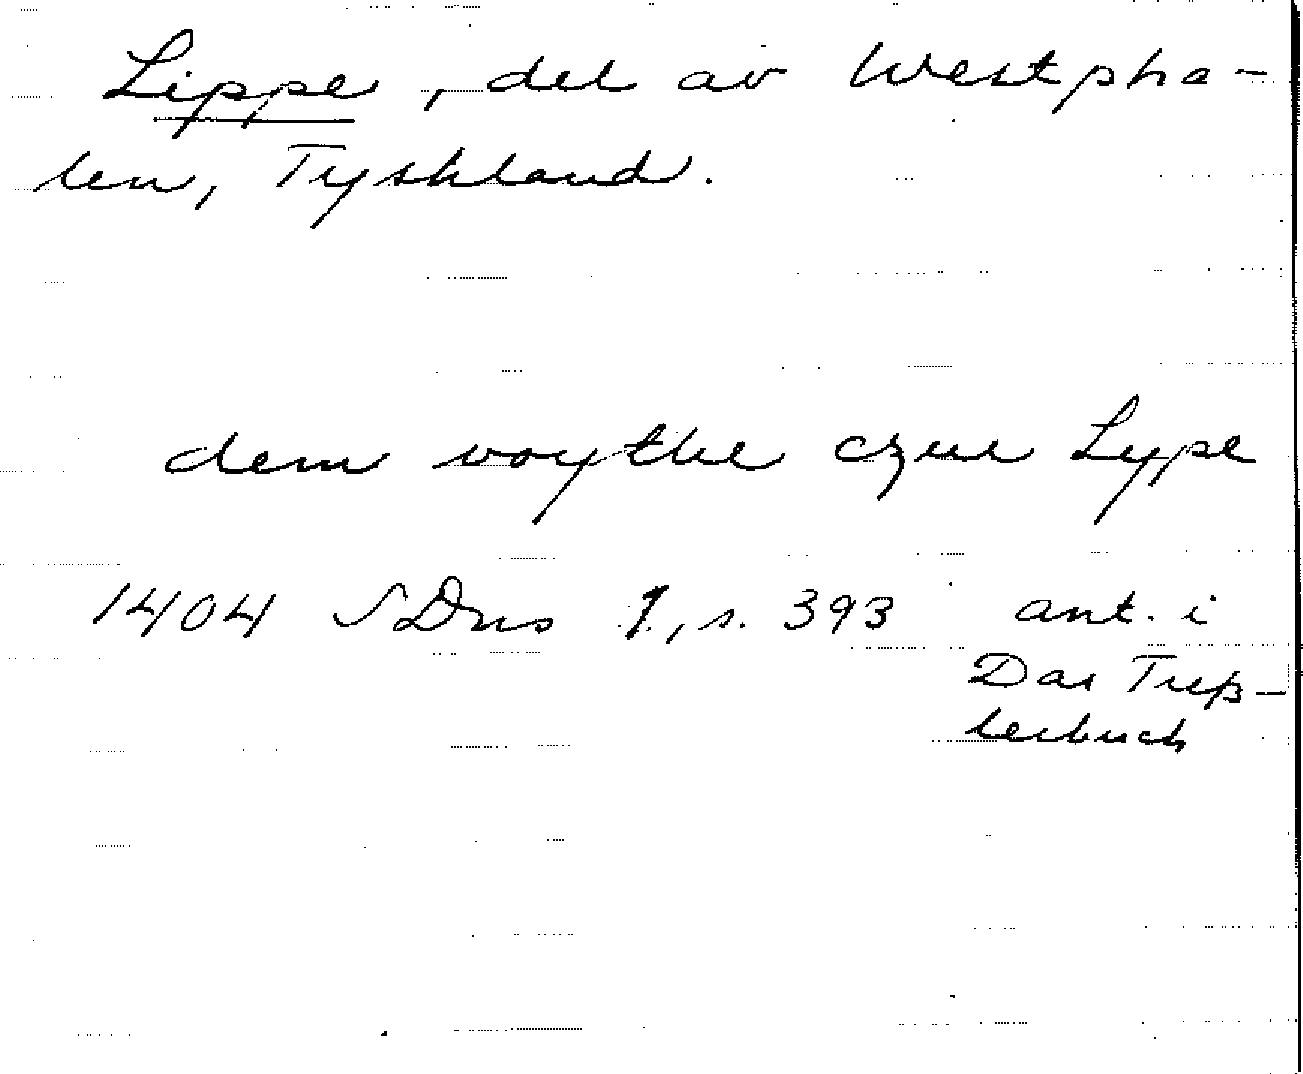 Lippe, del av Westpha-
len, Tyskland.
dem voythe czue Lype
1404 SDns 1, s. 393 ant. i
Das Treß-
lerbuch